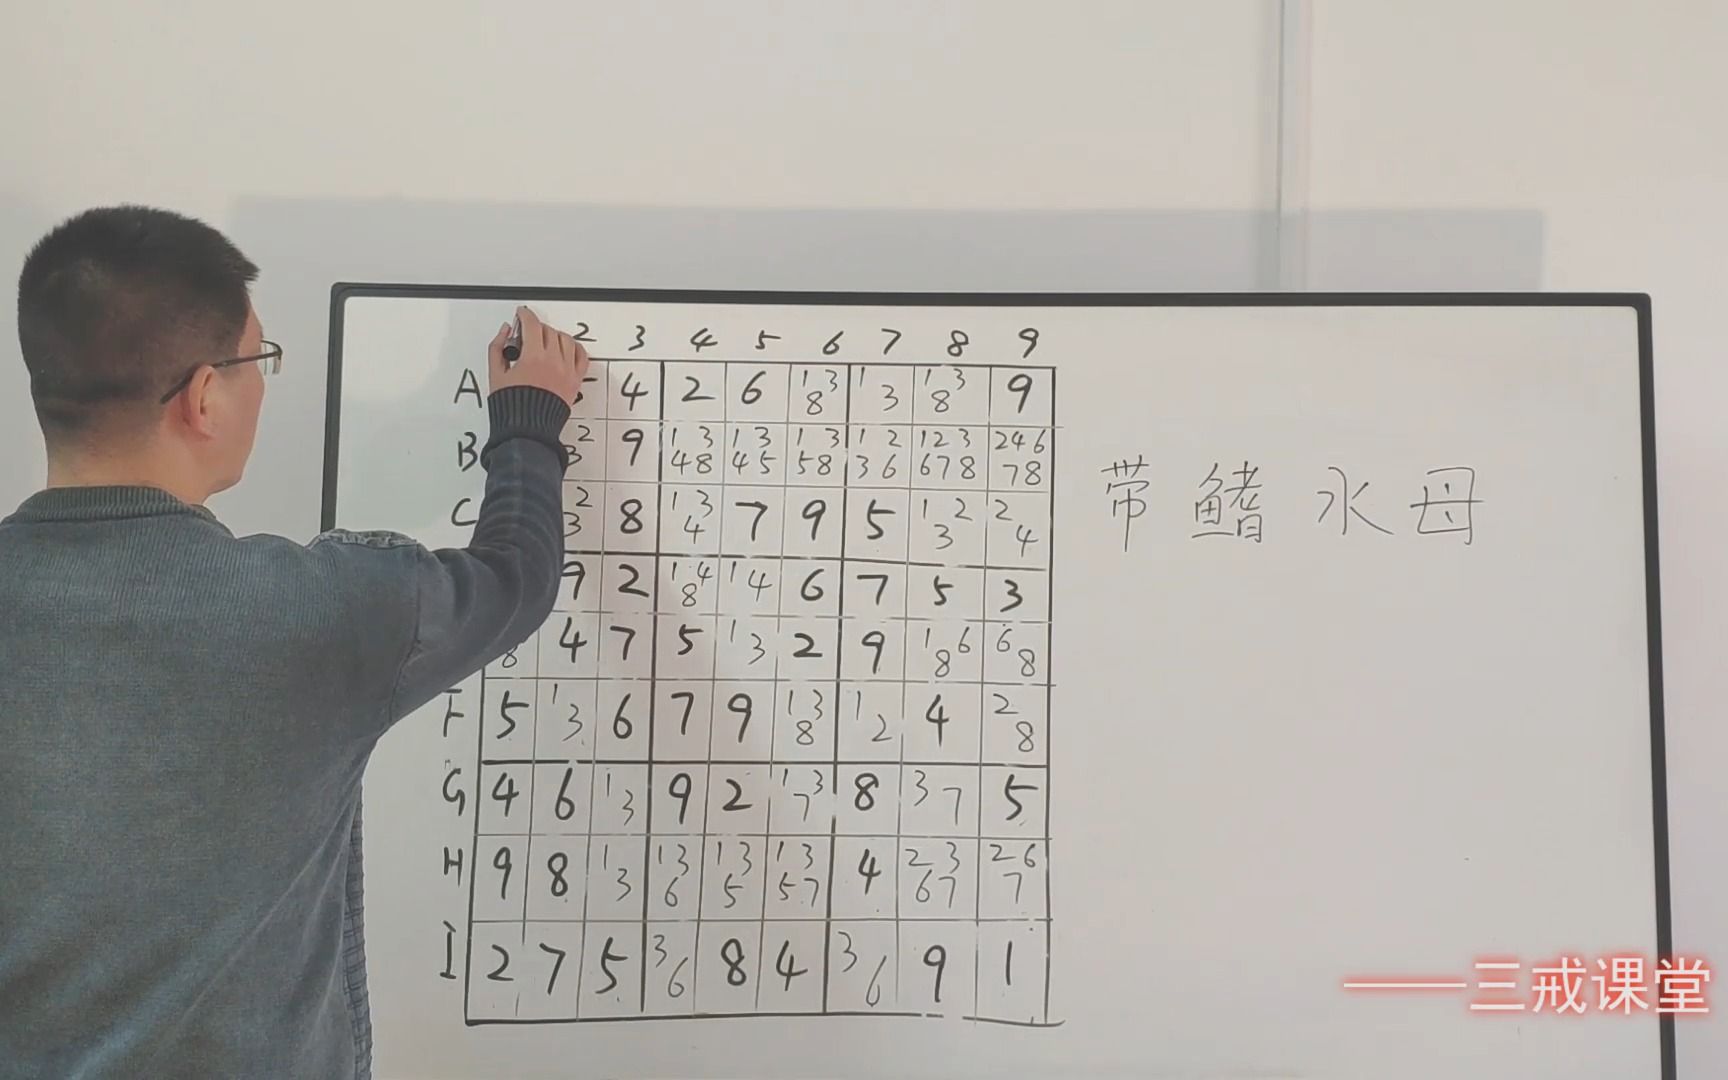 2 3 4 5 6 7 8 9
A 4 2 6 1 3 8 1 3 1 3 8 9
B 2 3 9 1 3 4 8 1 3 4 5 1 3 5 8 1 2 3 6 1 2 3 6 7 8 2 4 6 7 8
C 2 3 8 1 3 4 7 9 5 1 2 3 2 4
9 2 1 4 8 1 4 6 7 5 3
8 4 7 5 1 3 2 9 1 6 8 6 8
F 5 1 3 6 7 9 1 3 8 1 2 4 2 8
G 4 6 1 3 9 2 1 3 7 8 3 7 5
H 9 8 1 3 1 3 6 1 3 5 1 3 5 7 4 2 3 6 7 2 6 7
I 2 7 5 3 6 8 4 3 6 9 1
带鳍水母
——三戒课堂